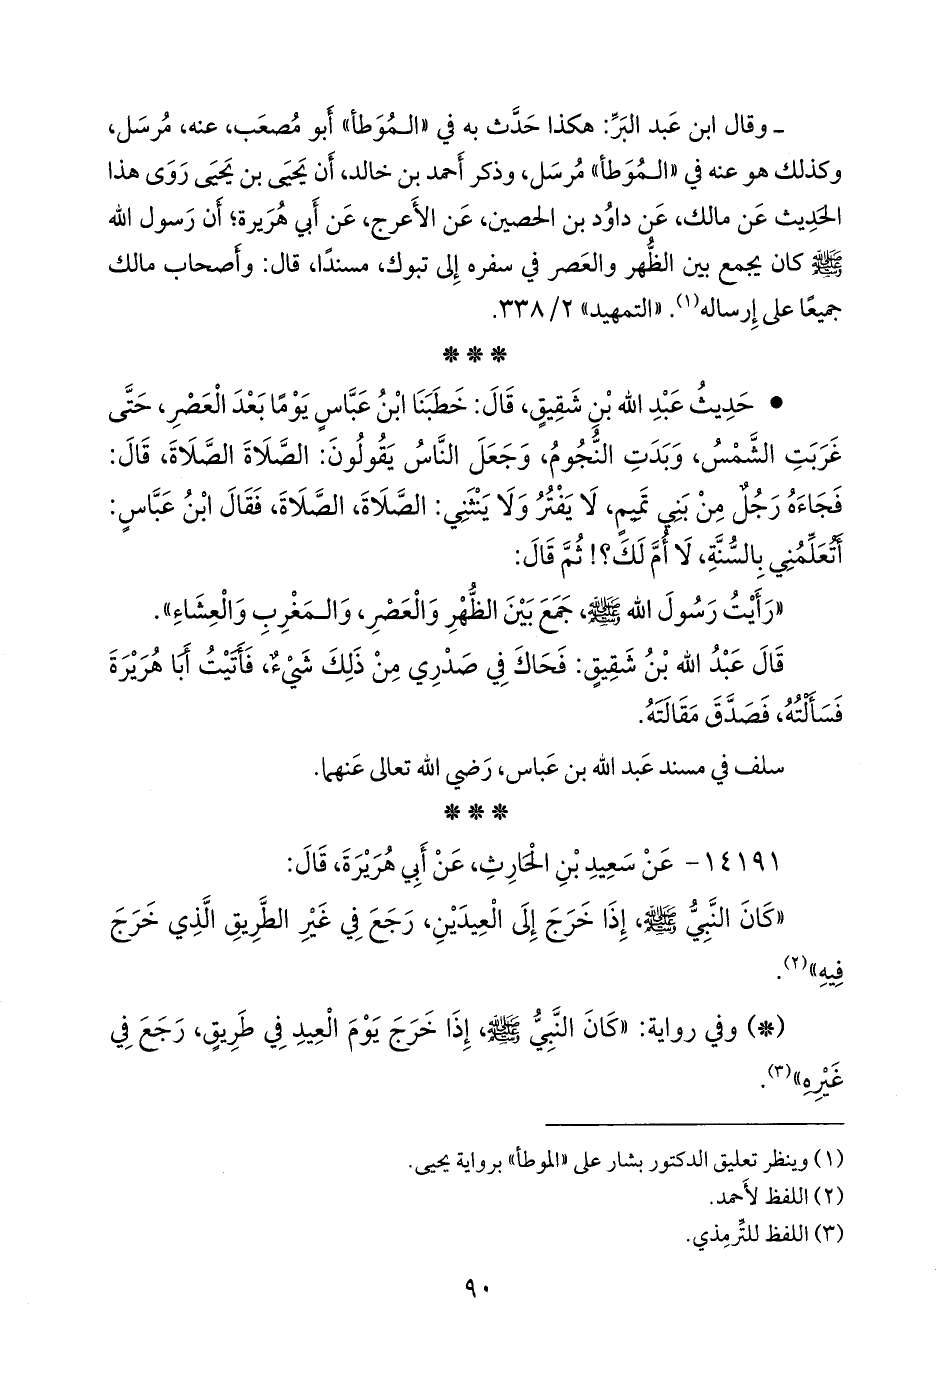 ـ وقال ابن عَبد البَرِّ: هكذا حَدَّث به في «الـمُوَطأ» أَبو مُصعَب، عنه، مُرسَل،
وكذلك هو عنه في «الـمُوَطأ» مُرسَل، وذكر أَحمد بن خالد، أَن يَحيَى بن يَحيَى رَوَى هذا
الحَدِيث عَن مالك، عَن داوُد بن الحصين، عَن الأَعرج، عَن أَبي هُرَيرة؛ أَن رَسول الله
ﷺ كان يجمع بين الظُّهر والعَصر في سفره إِلى تبوك، مسندًا، قال: وأَصحاب مالك
جميعًا على إِرساله(١). «التمهيد» ٢/ ٣٣٨.
* * *
• حَدِيثُ عَبْدِ الله بْنِ شَقِيقٍ، قَالَ: خَطَبَنَا ابْنُ عَبَّاسٍ يَوْمًا بَعْدَ الْعَصْرِ، حَتَّى
غَرَبَتِ الشَّمْسُ، وَبَدَتِ النُّجُومُ، وَجَعَلَ النَّاسُ يَقُولُونَ: الصَّلَاةَ الصَّلَاةَ، قَالَ:
فَجَاءَهُ رَجُلٌ مِنْ بَنِي تَمِيمٍ، لَا يَفْتُرُ وَلَا يَنْثَنِي: الصَّلَاةَ، الصَّلَاةَ، فَقَالَ ابْنُ عَبَّاسٍ:
أَتُعَلِّمُنِي بِالسُّنَّةِ، لَا أُمَّ لَكَ؟! ثُمَّ قَالَ:
«رَأَيْتُ رَسُولَ الله ﷺ، جَمَعَ بَيْنَ الظُّهْرِ وَالْعَصْرِ، وَالـمَغْرِبِ وَالْعِشَاءِ».
قَالَ عَبْدُ الله بْنُ شَقِيقٍ: فَحَاكَ فِي صَدْرِي مِنْ ذَلِكَ شَيْءٌ، فَأَتَيْتُ أَبَا هُرَيْرَةَ
فَسَأَلْتُهُ، فَصَدَّقَ مَقَالَتَهُ.
سلف في مسند عَبد الله بن عَباس، رَضي الله تعالى عَنهما.
* * *
١٤١٩١- عَنْ سَعِيدِ بْنِ الْحَارِثِ، عَنْ أَبِي هُرَيْرَةَ، قَالَ:
«كَانَ النَّبِيُّ ﷺ، إِذَا خَرَجَ إِلَى الْعِيدَيْنِ، رَجَعَ فِي غَيْرِ الطَّرِيقِ الَّذِي خَرَجَ
فِيهِ»(٢).
(*) وفي رواية: «كَانَ النَّبِيُّ ﷺ، إِذَا خَرَجَ يَوْمَ الْعِيدِ فِي طَرِيقٍ، رَجَعَ فِي
غَيْرِهِ»(٣).
(١) وينظر تعليق الدكتور بشار على «الموطأ» برواية يحيى.
(٢) اللفظ لأَحمد.
(٣) اللفظ للتِّرمِذي.
٩٠